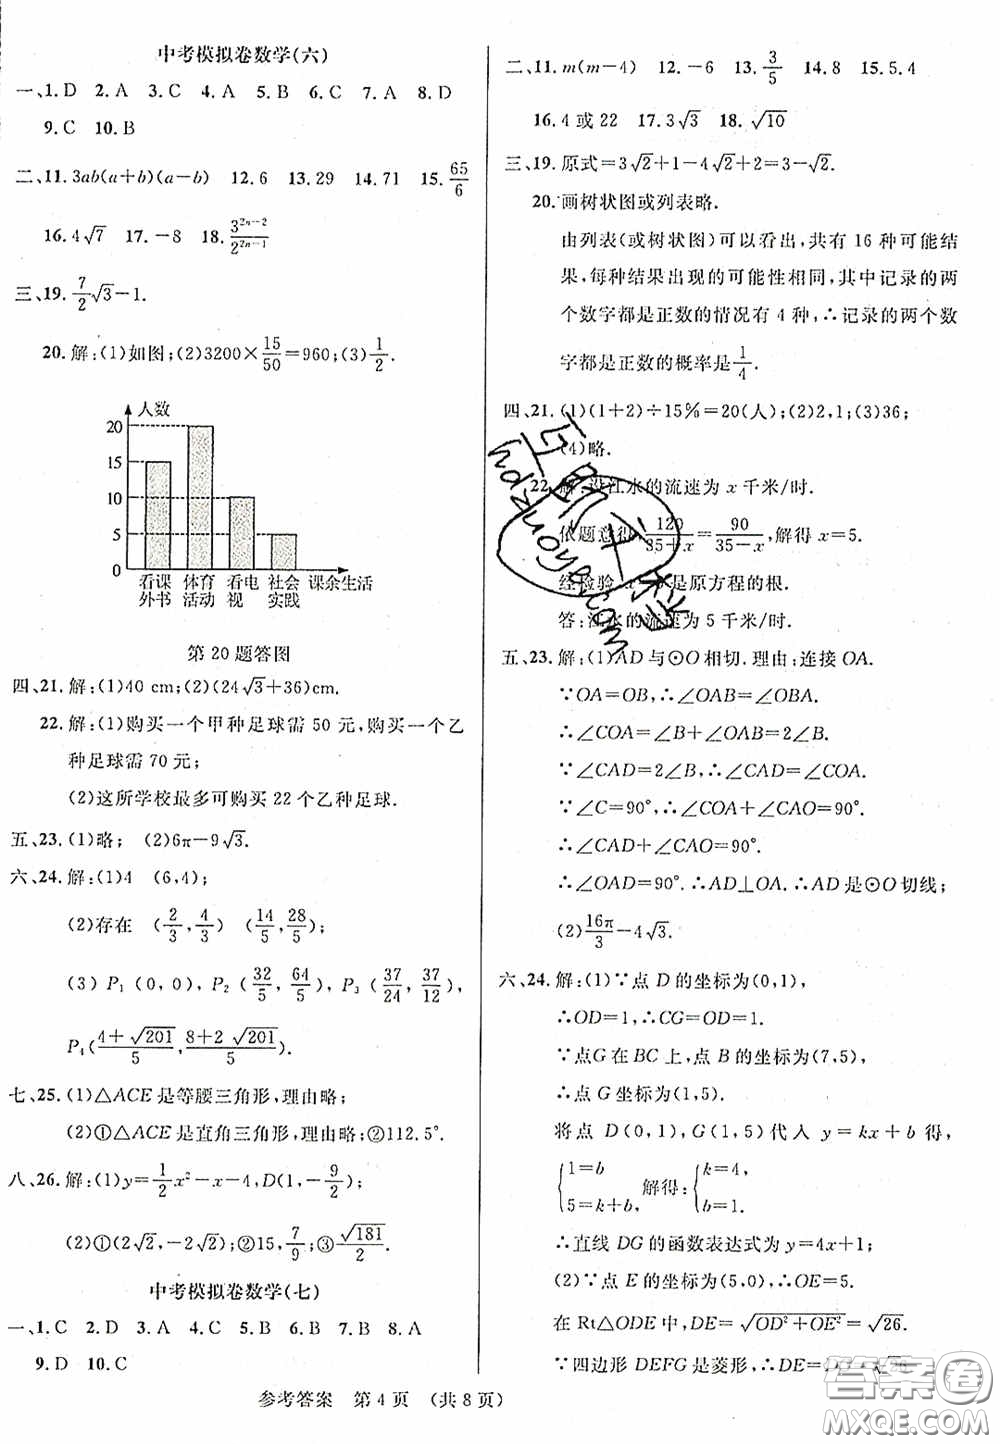 中考模拟卷数学(六)
一、1.D 2.A 3.C 4.A 5.B 6.C 7.A 8.D
9.C 10.B
二、11.3ab(a+b)(a-b) 12.6 13.29 14.71 15.65/6
16.4√7 17.-8 18.3^(2n-2)/2^(2n-1)
三、19.7/2√3-1.
20.解:(1)如图;(2)3200×15/50=960;(3)1/2.
人数
20
15
10
5
0
看课外书 体育活动 看电视 社会实践 课余生活
第20题答图
四、21.解:(1)40 cm;(2)(24√3+36)cm.
22.解:(1)购买一个甲种足球需 50 元,购买一个乙
种足球需 70 元;
(2)这所学校最多可购买 22 个乙种足球.
五、23.(1)略; (2)6π-9√3.
六、24.解:(1)4 (6,4);
(2)存在 (2/3,4/3) (14/5,28/5);
(3) P₁ (0,0), P₂ (32/5,64/5), P₃ (37/24,37/12),
P₄(4+√201/5,8+2√201/5).
七、25.(1)△ACE是等腰三角形,理由略;
(2)①△ACE是直角三角形,理由略;②112.5°.
八、26.解:(1)y=1/2x²-x-4,D(1,-9/2);
(2)①(2√2,-2√2);②15,7/9;③√181/2.
中考模拟卷数学(七)
一、1.C 2.D 3.A 4.C 5.B 6.B 7.B 8.A
9.D 10.C
二、11.m(m-4) 12.-6 13.3/5 14.8 15.5.4
16.4 或 22 17.3√3 18.√10
三、19.原式=3√2+1-4√2+2=3-√2.
20.画树状图或列表略.
由列表(或树状图)可以看出,共有 16 种可能结
果,每种结果出现的可能性相同,其中记录的两
个数字都是正数的情况有 4 种,∴记录的两个数
字都是正数的概率是1/4.
四、21.(1)(1+2)÷15%=20(人);(2)2,1;(3)36;
(4)略.
22.解:设江水的流速为 x 千米/时.
依题意得,120/35+x=90/35-x,解得 x=5.
经检验 是原方程的根.
答:江水的流速为 5 千米/时.
五、23.解:(1)AD 与⊙O 相切.理由:连接 OA.
∵OA=OB,∴∠OAB=∠OBA.
∴∠COA=∠B+∠OAB=2∠B.
∵∠CAD=2∠B,∴∠CAD=∠COA.
∵∠C=90°,∴∠COA+∠CAO=90°.
∴∠CAD+∠CAO=90°.
∴∠OAD=90°.∴AD⊥OA.∴AD 是⊙O 切线;
(2)16π/3-4√3.
六、24.解:(1)∵点 D 的坐标为(0,1),
∴OD=1,∴CG=OD=1.
∵点G 在 BC 上,点 B 的坐标为(7,5),
∴点 G 的坐标为(1,5).
将点 D(0,1),G(1,5)代入 y=kx+b 得,
{1=b 5=k+b, 解得:{k=4, b=1.
∴直线 DG 的函数表达式为 y=4x+1;
(2)∵点 E 的坐标为(5.0),∴OE=5.
在 Rt△ODE 中,DE=√OD²+OE²=√26.
∵四边形 DEFG 是菱形,∴DE=
参考答案 第 4 页 (共 8 页)
互动作业
hdzuoye.com
答案圈
MXQE.COM